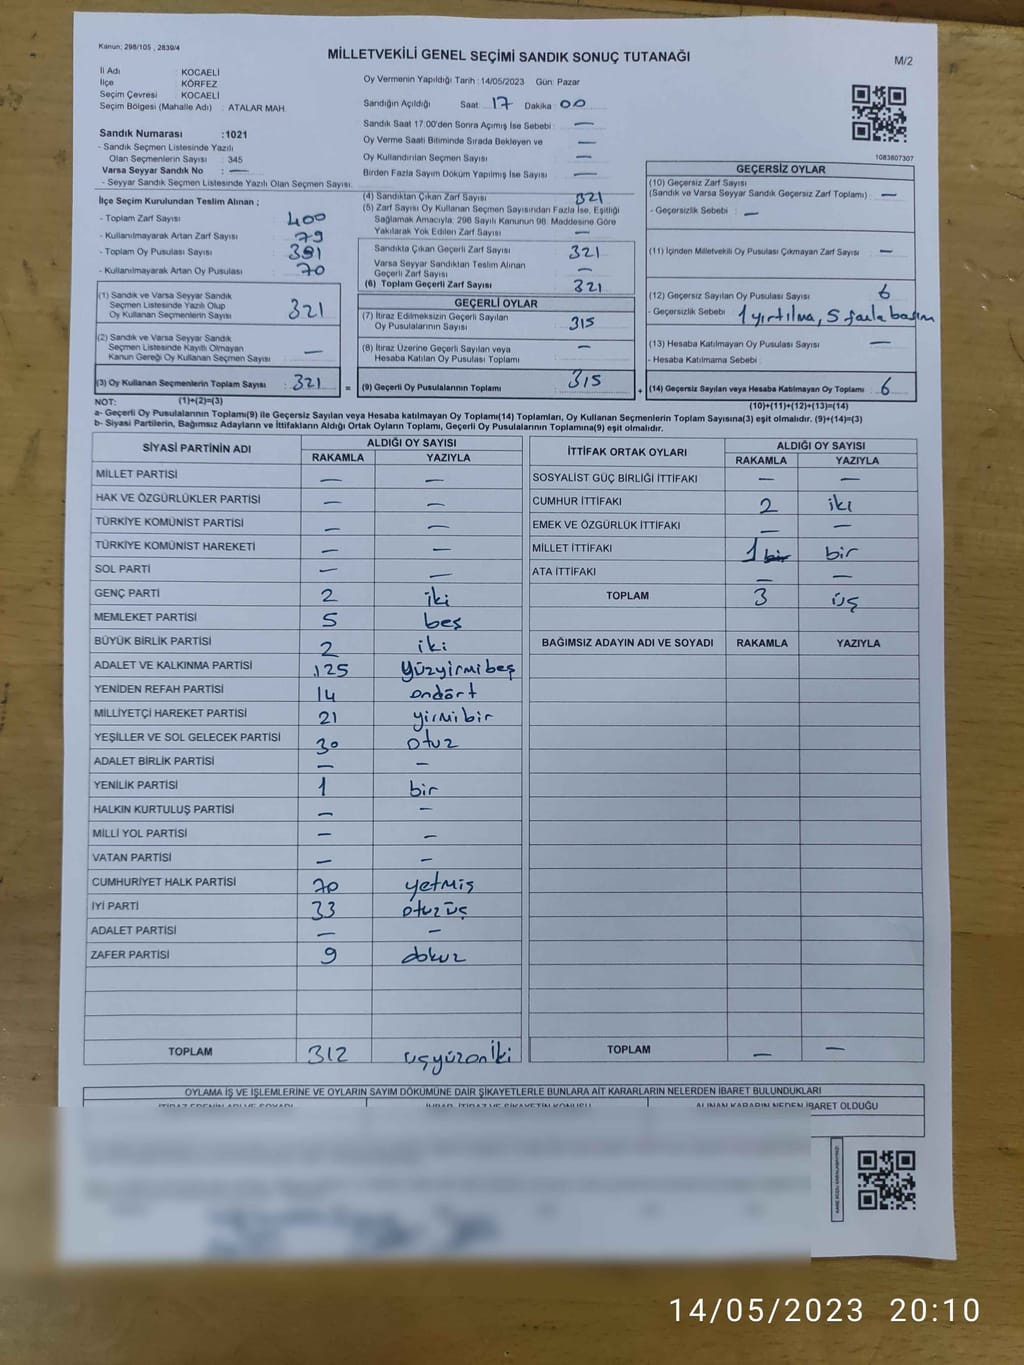 Kanun; 298/105 , 2839/4
MİLLETVEKİLİ GENEL SEÇİMİ SANDIK SONUÇ TUTANAĞI
M/2
İl Adı : KOCAELİ
İlçe : KÖRFEZ
Seçim Çevresi : KOCAELİ
Seçim Bölgesi (Mahalle Adı) : ATALAR MAH.
Sandık Numarası :1021
- Sandık Seçmen Listesinde Yazılı
Olan Seçmenlerin Sayısı : 345
Varsa Seyyar Sandık No : —
- Seyyar Sandık Seçmen Listesinde Yazılı Olan Seçmen Sayısı:
Oy Vermenin Yapıldığı Tarih :14/05/2023 Gün: Pazar
Sandığın Açıldığı Saat 17 Dakika 00
Sandık Saat 17:00'den Sonra Açılmış İse Sebebi : —
Oy Verme Saati Bitiminde Sırada Bekleyen ve —
Oy Kullandırılan Seçmen Sayısı : —
Birden Fazla Sayım Döküm Yapılmış İse Sayısı : —
1083807307
İlçe Seçim Kurulundan Teslim Alınan ;
- Toplam Zarf Sayısı : 400
- Kullanılmayarak Artan Zarf Sayısı : 79
- Toplam Oy Pusulası Sayısı : 391
- Kullanılmayarak Artan Oy Pusulası : 70
(1) Sandık ve Varsa Seyyar Sandık
Seçmen Listesinde Yazılı Olup
Oy Kullanan Seçmenlerin Sayısı : 321
(2) Sandık ve Varsa Seyyar Sandık
Seçmen Listesinde Kayıtlı Olmayan
Kanun Gereği Oy Kullanan Seçmen Sayısı : —
(3) Oy Kullanan Seçmenlerin Toplam Sayısı : 321 =
(4) Sandıktan Çıkan Zarf Sayısı : 321
(5) Zarf Sayısı Oy Kullanan Seçmen Sayısından Fazla İse, Eşitliği
Sağlamak Amacıyla; 298 Sayılı Kanunun 98. Maddesine Göre
Yakılarak Yok Edilen Zarf Sayısı : —
Sandıkta Çıkan Geçerli Zarf Sayısı : 321
Varsa Seyyar Sandıktan Teslim Alınan
Geçerli Zarf Sayısı : —
(6) Toplam Geçerli Zarf Sayısı : 321
GEÇERLİ OYLAR
(7) İtiraz Edilmeksizin Geçerli Sayılan
Oy Pusulalarının Sayısı : 315
(8) İtiraz Üzerine Geçerli Sayılan veya
Hesaba Katılan Oy Pusulası Toplamı : —
(9) Geçerli Oy Pusulalarının Toplamı : 315 +
GEÇERSİZ OYLAR
(10) Geçersiz Zarf Sayısı
(Sandık ve Varsa Seyyar Sandık Geçersiz Zarf Toplamı) : —
- Geçersizlik Sebebi : —
(11) İçinden Milletvekili Oy Pusulası Çıkmayan Zarf Sayısı : —
(12) Geçersiz Sayılan Oy Pusulası Sayısı : 6
- Geçersizlik Sebebi : 1 yırtılma, 5 fazla basım
(13) Hesaba Katılmayan Oy Pusulası Sayısı : —
- Hesaba Katılmama Sebebi :
(14) Geçersiz Sayılan veya Hesaba Katılmayan Oy Toplamı : 6
NOT: (1)+(2)=(3)
(10)+(11)+(12)+(13)=(14)
a- Geçerli Oy Pusulalarının Toplamı(9) ile Geçersiz Sayılan veya Hesaba katılmayan Oy Toplamı(14) Toplamları, Oy Kullanan Seçmenlerin Toplam Sayısına(3) eşit olmalıdır. (9)+(14)=(3)
b- Siyasi Partilerin, Bağımsız Adayların ve İttifakların Aldığı Ortak Oyların Toplamı, Geçerli Oy Pusulalarının Toplamına(9) eşit olmalıdır.
SİYASİ PARTİNİN ADI ALDIĞI OY SAYISI
RAKAMLA YAZIYLA
MİLLET PARTİSİ — —
HAK VE ÖZGÜRLÜKLER PARTİSİ — —
TÜRKİYE KOMÜNİST PARTİSİ — —
TÜRKİYE KOMÜNİST HAREKETİ — —
SOL PARTİ — —
GENÇ PARTİ 2 iki
MEMLEKET PARTİSİ 5 beş
BÜYÜK BİRLİK PARTİSİ 2 iki
ADALET VE KALKINMA PARTİSİ 125 yüzyirmibeş
YENİDEN REFAH PARTİSİ 14 ondört
MİLLİYETÇİ HAREKET PARTİSİ 21 yirmibir
YEŞİLLER VE SOL GELECEK PARTİSİ 30 otuz
ADALET BİRLİK PARTİSİ — —
YENİLİK PARTİSİ 1 bir
HALKIN KURTULUŞ PARTİSİ — —
MİLLİ YOL PARTİSİ — —
VATAN PARTİSİ — —
CUMHURİYET HALK PARTİSİ 70 yetmiş
İYİ PARTİ 33 otuzüç
ADALET PARTİSİ — —
ZAFER PARTİSİ 9 dokuz
TOPLAM 312 üçyüzoniki
İTTİFAK ORTAK OYLARI ALDIĞI OY SAYISI
RAKAMLA YAZIYLA
SOSYALİST GÜÇ BİRLİĞİ İTTİFAKI — —
CUMHUR İTTİFAKI 2 iki
EMEK VE ÖZGÜRLÜK İTTİFAKI — —
MİLLET İTTİFAKI 1 bir bir
ATA İTTİFAKI — —
TOPLAM 3 üç
BAĞIMSIZ ADAYIN ADI VE SOYADI RAKAMLA YAZIYLA
TOPLAM — —
OYLAMA İŞ VE İŞLEMLERİNE VE OYLARIN SAYIM DÖKÜMÜNE DAİR ŞİKAYETLERLE BUNLARA AİT KARARLARIN NELERDEN İBARET BULUNDUKLARI
İTİRAZ EDENİN ADI VE SOYADI İHBAR, İTİRAZ VE ŞİKAYETİN KONUSU ALINAN KARARIN NEDEN İBARET OLDUĞU
14/05/2023 20:10